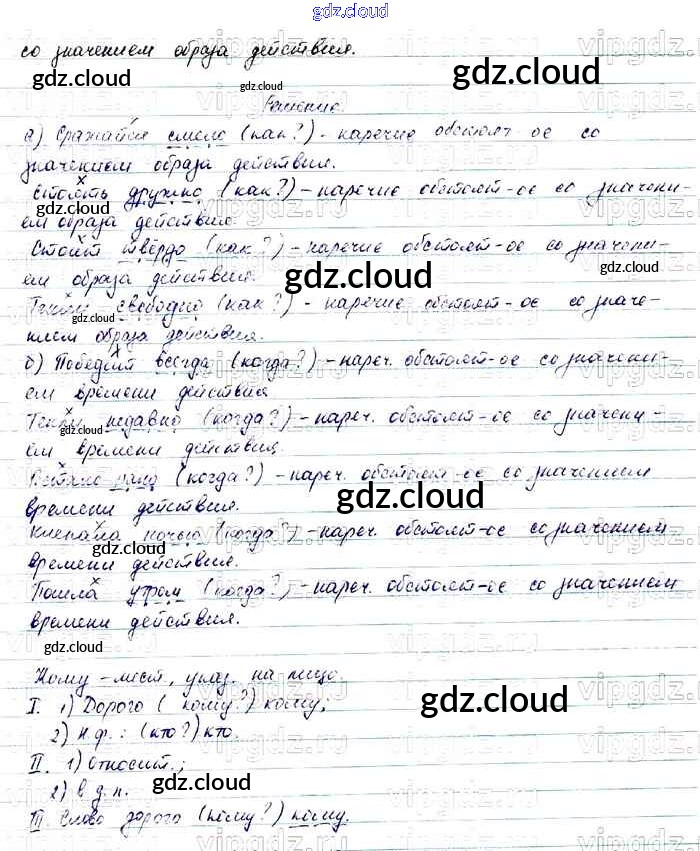 gdz.cloud
со значением образа действия.
Решение.
а) Сражайся смело (как?) - наречие обстоят-ое со
значением образа действия.
Стоять дружно (как?) - наречие обстоят-ое со значени-
ем образа действия.
Стоит твёрдо (как?) - наречие обстоят-ое со значени-
ем образа действия.
свободно (как?) - наречие обстоят-ое со значе-
нием образа действия.
б) Победит всегда (когда?) - нареч. обстоят-ое со значени-
ем времени действия
недавно (когда?) - нареч. обстоят-ое со значени-
ем времени действия.
рано (когда?) - нареч. обстоят-ое со значением
времени действия.
ночью (когда?) - нареч. обстоят-ое со значением
времени действия.
Пошла утром (когда?) - нареч. обстоят-ое со значением
времени действия.
Кому - мест., указ. на лицо.
I. 1) Дорого (кому?) кому;
2) н.ф.: (кто?) кто.
II. 1) Относит.;
2) в д.п.
III. Слово дорого (кому?) кому.